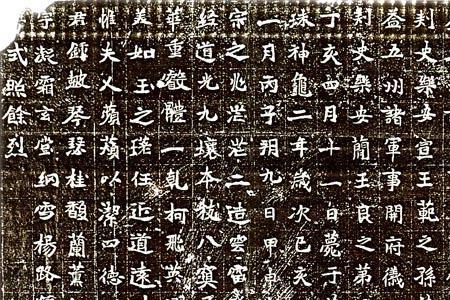 刺史樂安宣王範之孫
五州諸軍事開府儀
刺史樂安簡王良之弟
亥四月十一日薨于
珠神龜二年歲次己亥
一月丙子朔九日甲申
宗之兆芒芒二造雲雷
道光九壤本枝八
華重馥體一乾柯飛英
美如玉之瑤任近道遠
惟夫人蘋蘩以潔四德
君鍾敏琴瑟桂馥蘭薰
宇凝霜玄堂網雪楊路
式照餘烈